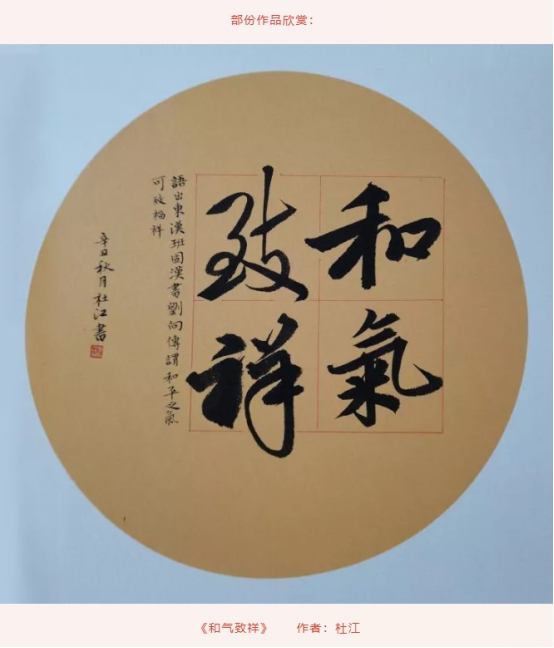 部份作品欣赏：
和氣
致祥
語出東漢班固漢書劉向傳謂和平之氣
可致福祥
辛丑秋月杜江書
《和气致祥》 作者：杜江